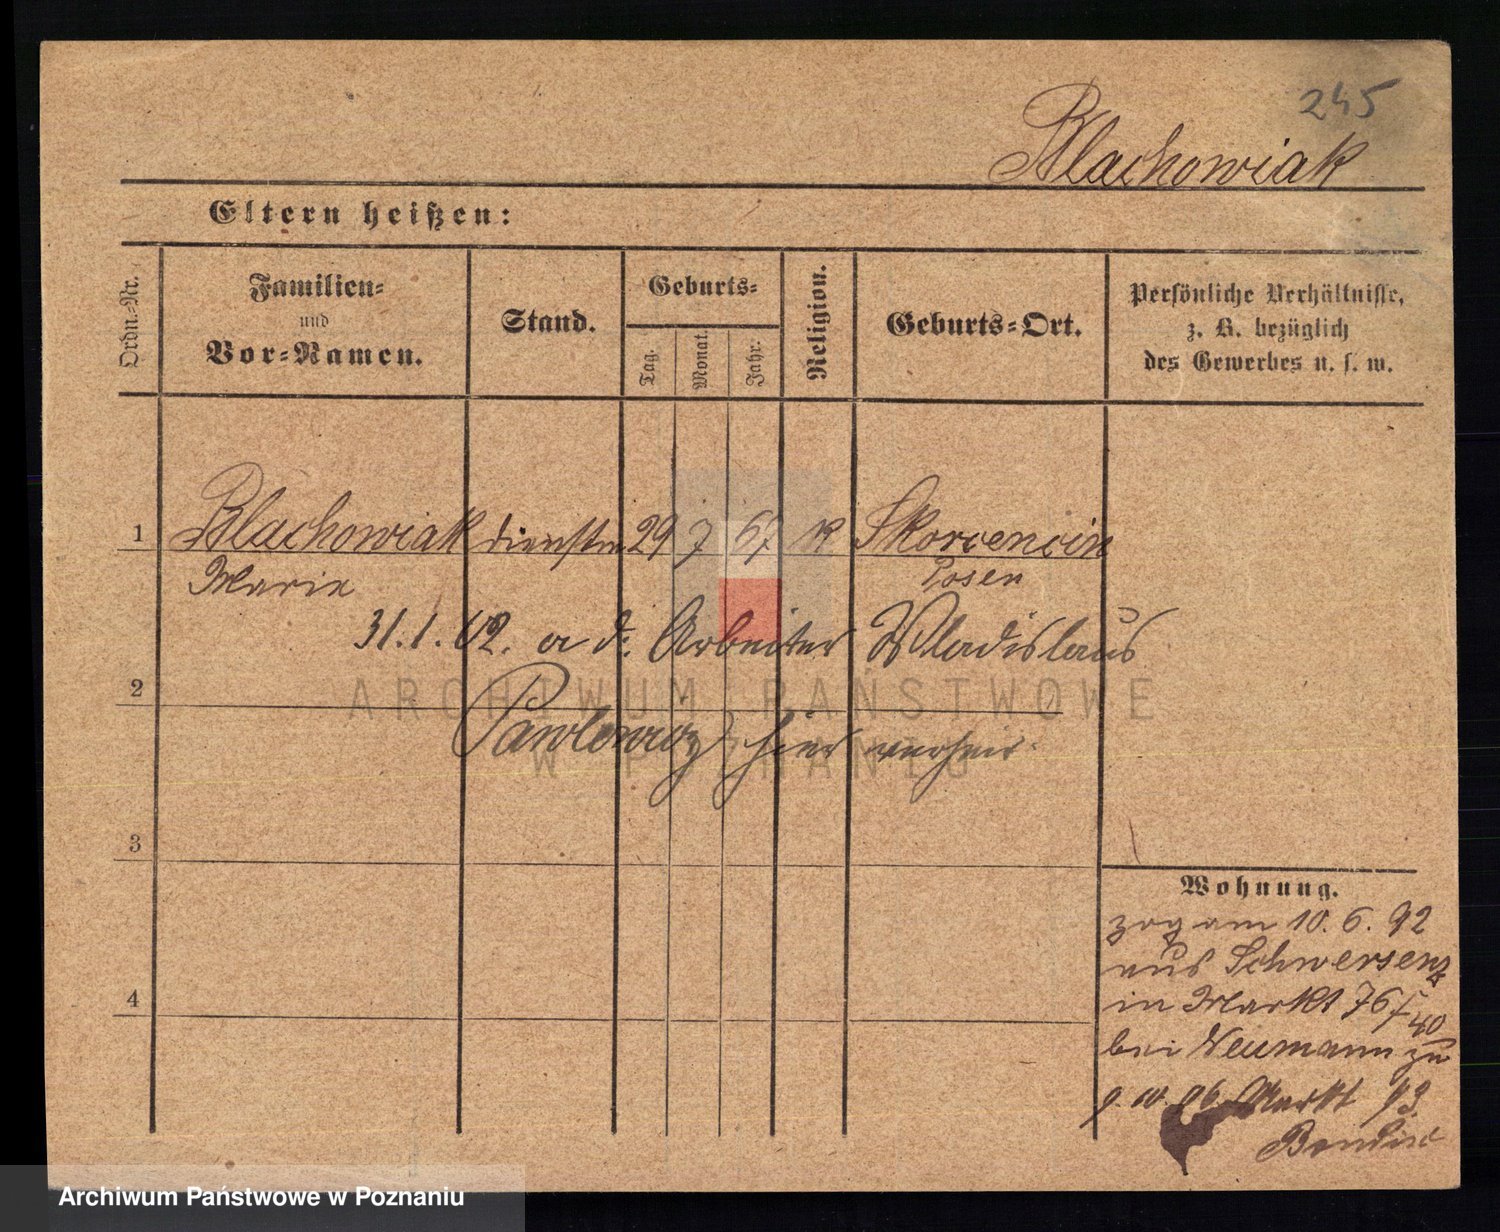 245
Blachowiak
Eltern heißen:
Ordn.-Nr.
Familien-
und
Vor-Namen.
Stand.
Geburts-
Tag.
Monat.
Jahr.
Religion.
Geburts-Ort.
Persönliche Verhältnisse,
z. B. bezüglich
des Gewerbes u. s. w.
1 Blachowiak dienstm 29 7 67 k Skorcencin
Marie Posen
31.1.02. a d. Arbeiter Wladislaus
2
Pawlowicz hier verheir.
ARCHIWUM PAŃSTWOWE
W POZNANIU
3
Wohnung.
zog am 10. 6. 92
aus Schwersenz
in Markt 76/40
4
bei Neumann zu
9. 10. 96. Markt 93.
Archiwum Państwowe w Poznaniu